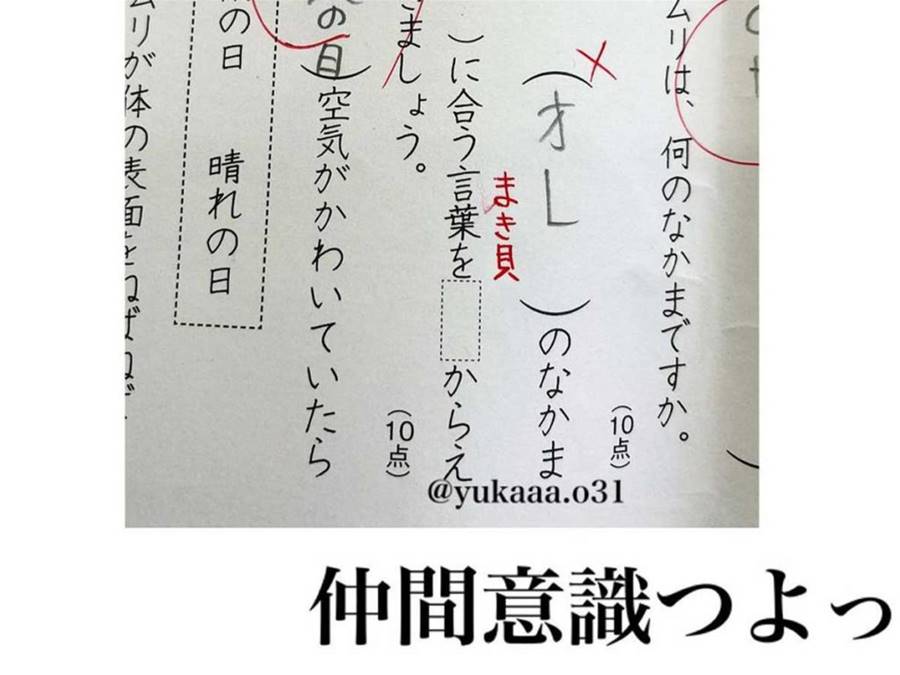 ムリは、何のなかまですか。
(10点)
(オレ)のなかま
まき貝
)に合う言葉を からえ
(10点)
きましょう。
の日)空気がかわいていたら
の日 晴れの日
ムリが体の表面をねばねば
@yukaaa.o31
仲間意識つよっ